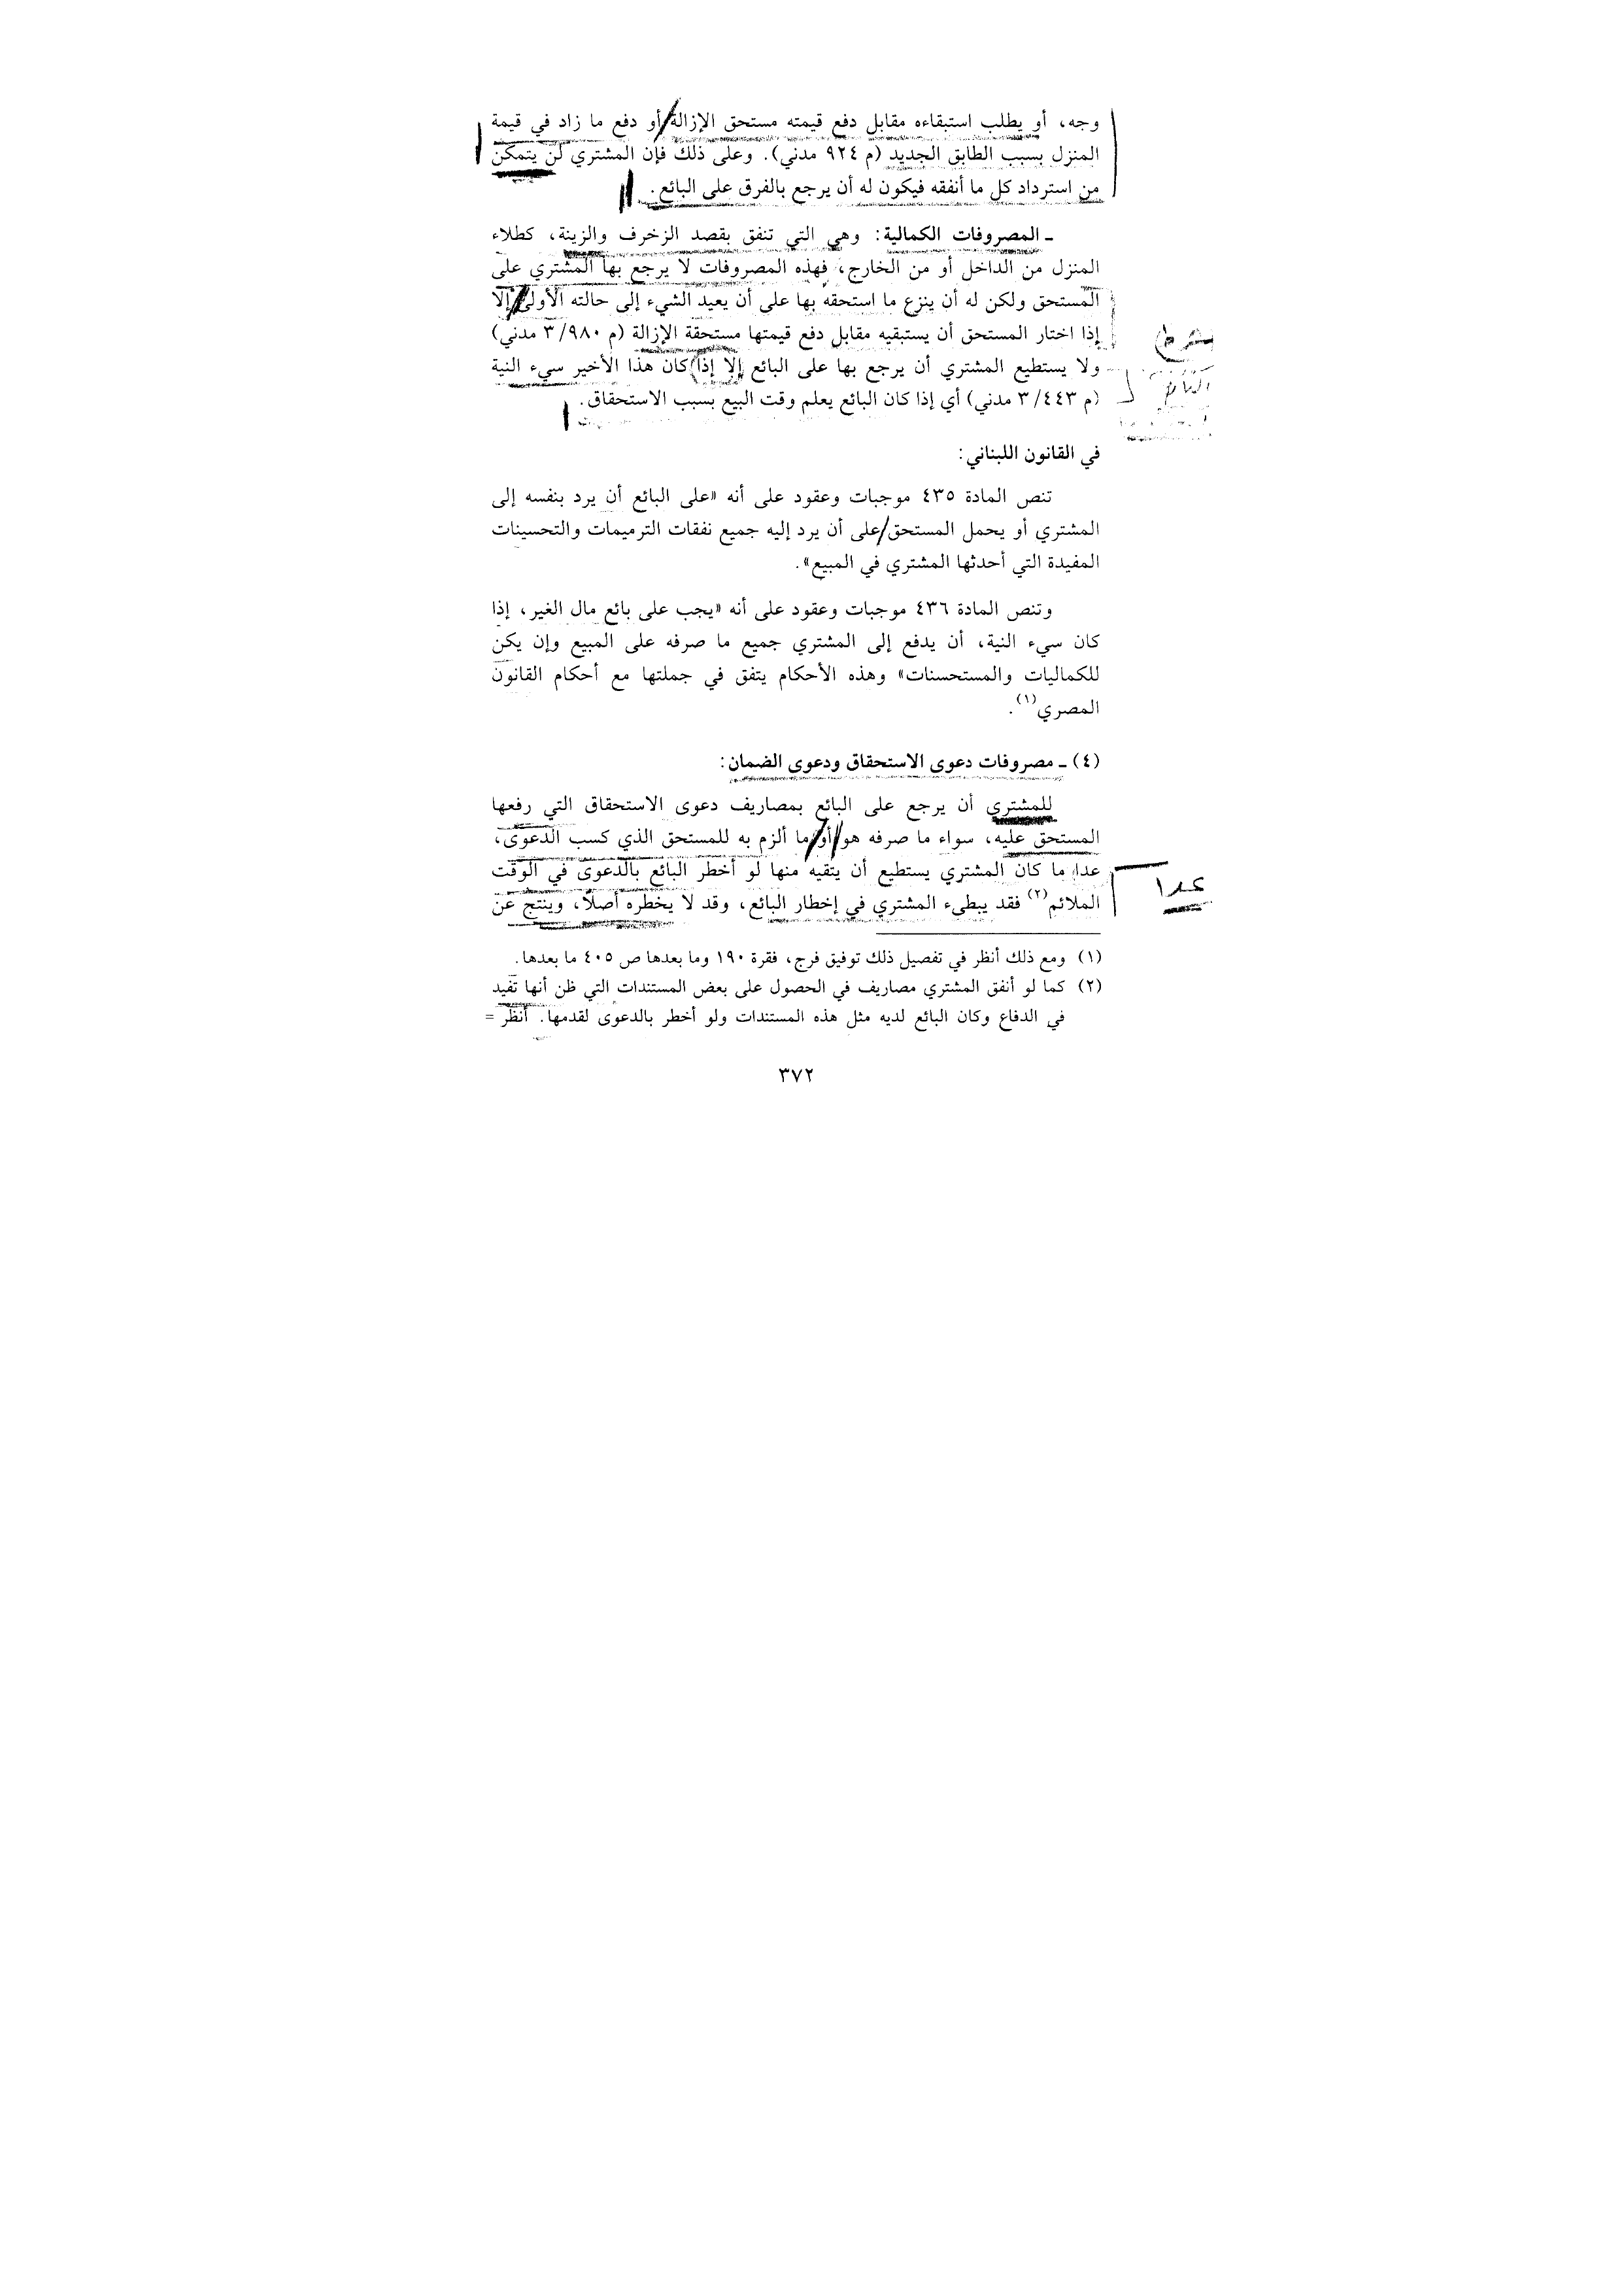 وجه، أو يطلب استبقاءه مقابل دفع قيمته مستحق الإزالة أو دفع ما زاد في قيمة
المنزل بسبب الطابق الجديد (م ٩٢٤ مدني). وعلى ذلك فإن المشتري لن يتمكن
من استرداد كل ما أنفقه فيكون له أن يرجع بالفرق على البائع.
ـ المصروفات الكمالية: وهي التي تنفق بقصد الزخرف والزينة، كطلاء
المنزل من الداخل أو من الخارج، فهذه المصروفات لا يرجع بها المشتري على
المستحق ولكن له أن ينزع ما استحقه بها على أن يعيد الشيء إلى حالته الأولى إلا
إذا اختار المستحق أن يستبقيه مقابل دفع قيمتها مستحقة الإزالة (م ٣/٩٨٠ مدني)
ولا يستطيع المشتري أن يرجع بها على البائع إلا إذا كان هذا الأخير سيء النية
(م ٣/٤٤٣ مدني) أي إذا كان البائع يعلم وقت البيع بسبب الاستحقاق.
في القانون اللبناني:
تنص المادة ٤٣٥ موجبات وعقود على أنه «على البائع أن يرد بنفسه إلى
المشتري أو يحمل المستحق على أن يرد إليه جميع نفقات الترميمات والتحسينات
المفيدة التي أحدثها المشتري في المبيع».
وتنص المادة ٤٣٦ موجبات وعقود على أنه «يجب على بائع مال الغير، إذا
كان سيء النية، أن يدفع إلى المشتري جميع ما صرفه على المبيع وإن يكن
للكماليات والمستحسنات» وهذه الأحكام يتفق في جملتها مع أحكام القانون
المصري(١).
(٤) ـ مصروفات دعوى الاستحقاق ودعوى الضمان:
للمشتري أن يرجع على البائع بمصاريف دعوى الاستحقاق التي رفعها
المستحق عليه، سواء ما صرفه هو أو ما ألزم به للمستحق الذي كسب الدعوى،
عدا ما كان المشتري يستطيع أن يتقيه منها لو أخطر البائع بالدعوى في الوقت
الملائم(٢) فقد يبطىء المشتري في إخطار البائع، وقد لا يخطره أصلاً، وينتج عن
عدا
(١) ومع ذلك أنظر في تفصيل ذلك توفيق فرج، فقرة ١٩٠ وما بعدها ص ٤٠٥ ما بعدها.
(٢) كما لو أنفق المشتري مصاريف في الحصول على بعض المستندات التي ظن أنها تفيد
في الدفاع وكان البائع لديه مثل هذه المستندات ولو أخطر بالدعوى لقدمها. أنظر =
٣٧٢